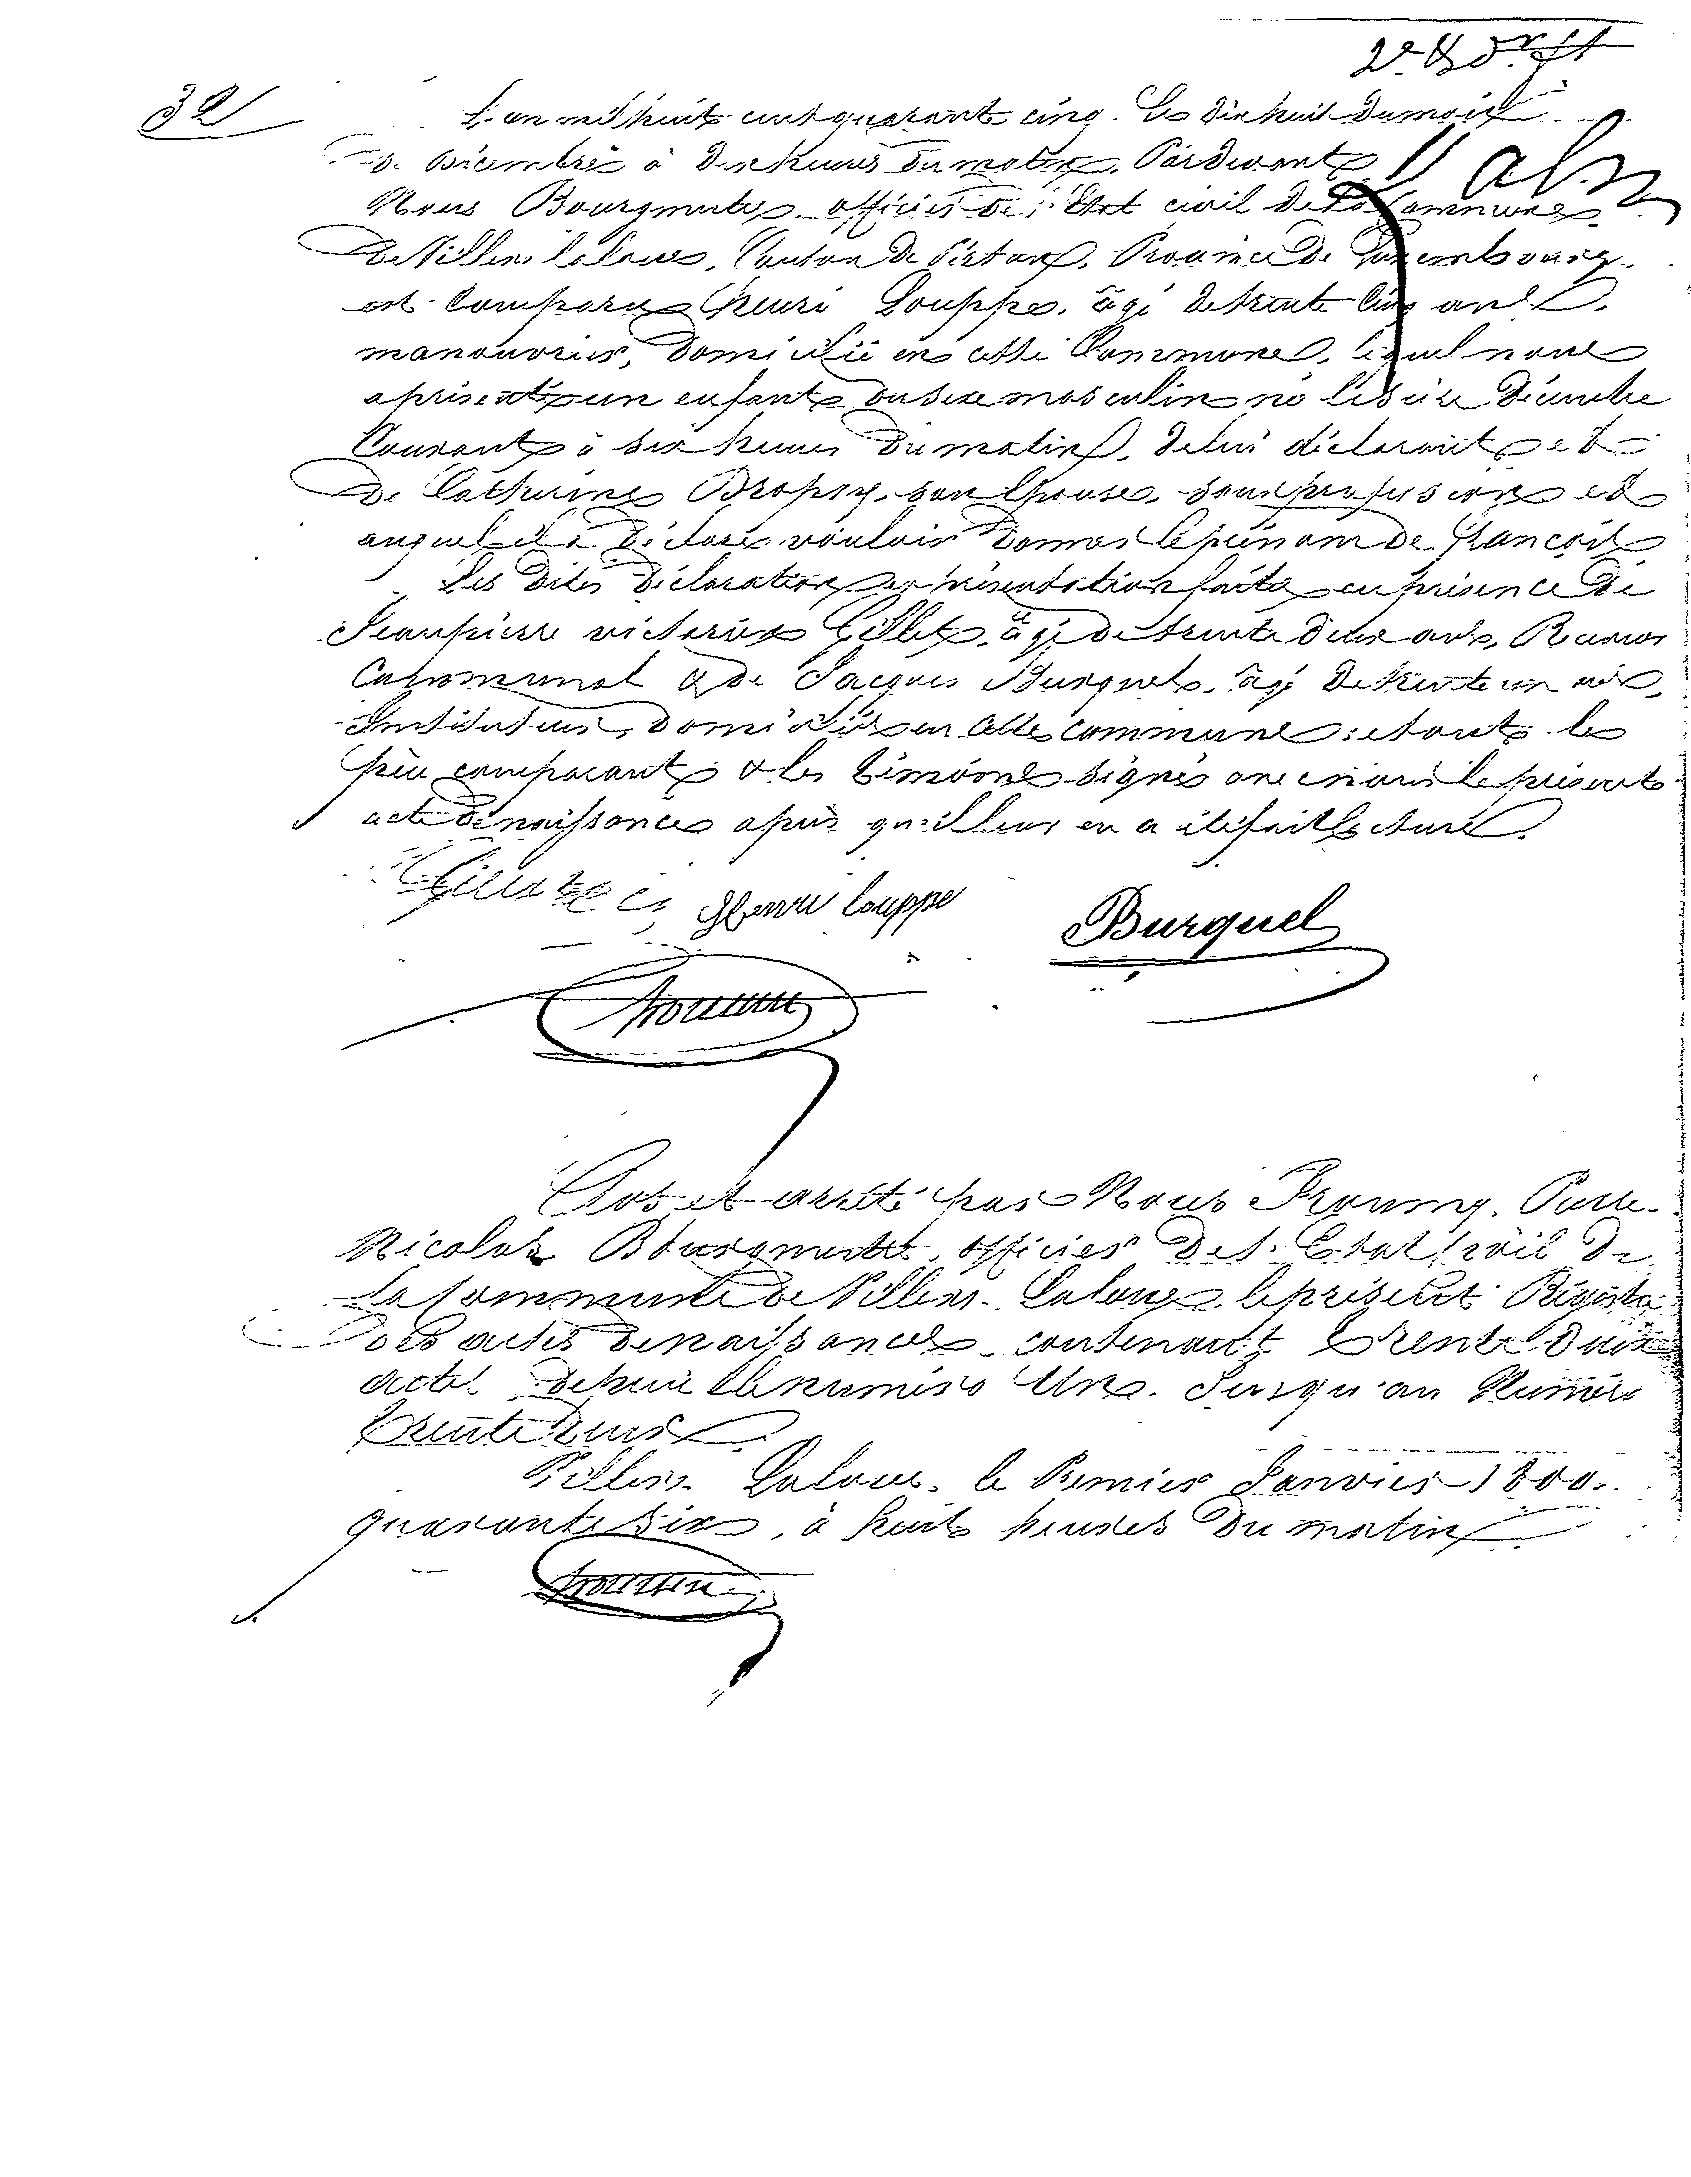 32
L'an mil huit cent quarante cinq. Le dix huit du mois
de Décembre à dix heures du matin, Pardevant
Nous Bourgmestre officier de l'Etat civil de la Commune
de Villers laloue, Canton de Virton, Province de Luxembourg
est comparu Henri Louppe, âgé de trente cinq ans
manouvrier, domicilié en cette Commune, lequel nous
a présenté un enfant du sexe masculin né le Décembre
Courant à six heures du matin, de lui déclarant et
de Catherine son Epouse, sans profession et
auquel il a déclaré vouloir donner le prénom de François
Les dites déclaration et présentation faites en présence de
Jean pierre victorien Gillet, âgé de trente deux ans, Receveur
Communal & de Jacques Burquel, âgé de trente un ans,
Instituteur, domiciliés en cette commune: et ont les
père comparant & les témoins signés avec nous le présent
acte de naissance après qu'il leur en a été fait lecture.
Henri Louppe
Burquel
Clos et arrêté par Nous Pierre
Nicolas Bourgmestre, officier de l'Etat Civil de
la Commune de Villers-Laloue, le présent Régistre
des actes de naissances contenant trente deux
actes depuis le numéro Un. Jusqu'au Numéro
trente deux
Villers Laloue, le Premier Janvier 1800.
quarante six, à huit heures du matin